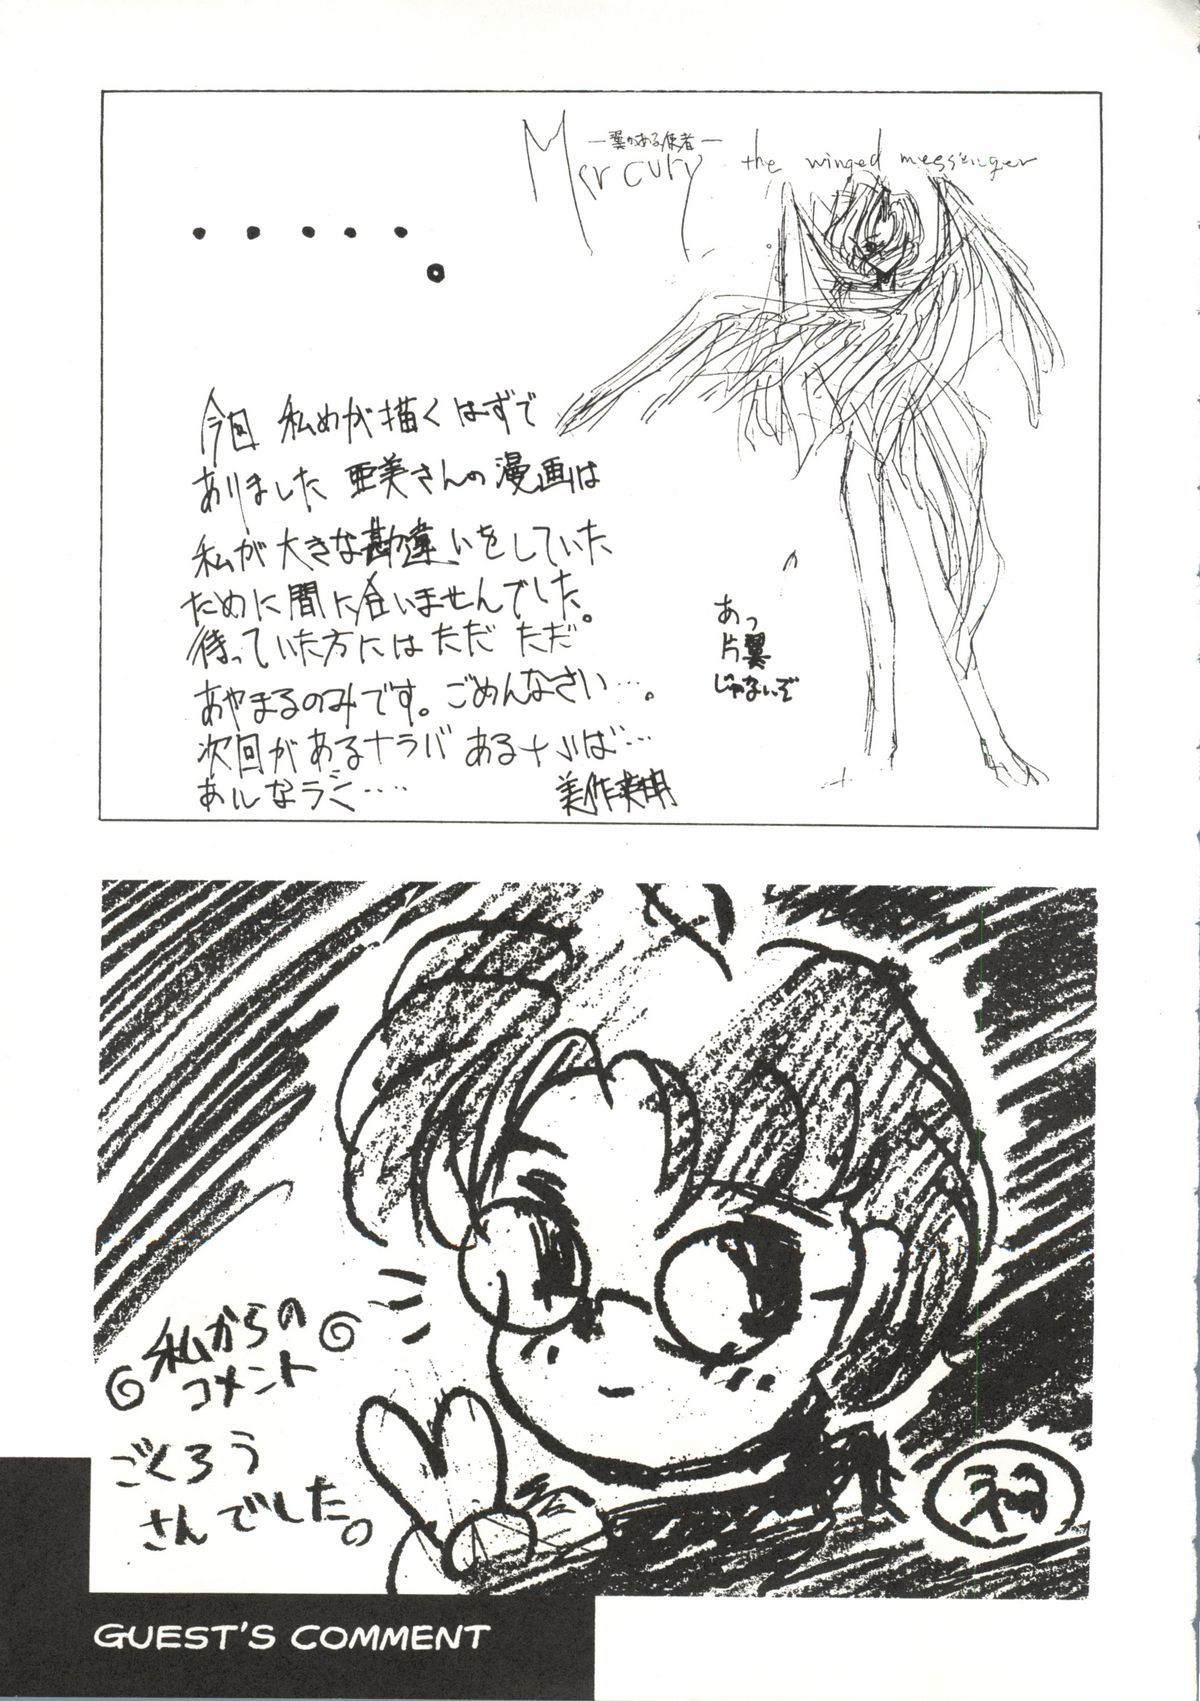 Mercury the winged messenger
―翼のある使者―
・・・・・。
今回 私めが描くはずで
ありました 亜美さんの漫画は
私が大きな勘違いをしていた
ために間に合いませんでした。
待っていた方には ただ ただ
あやまるのみです。ごめんなさい…。
次回がある
あっ
片翼
じゃないぞ
私からの
コメント
ごくろう
さんでした。
GUEST'S COMMENT